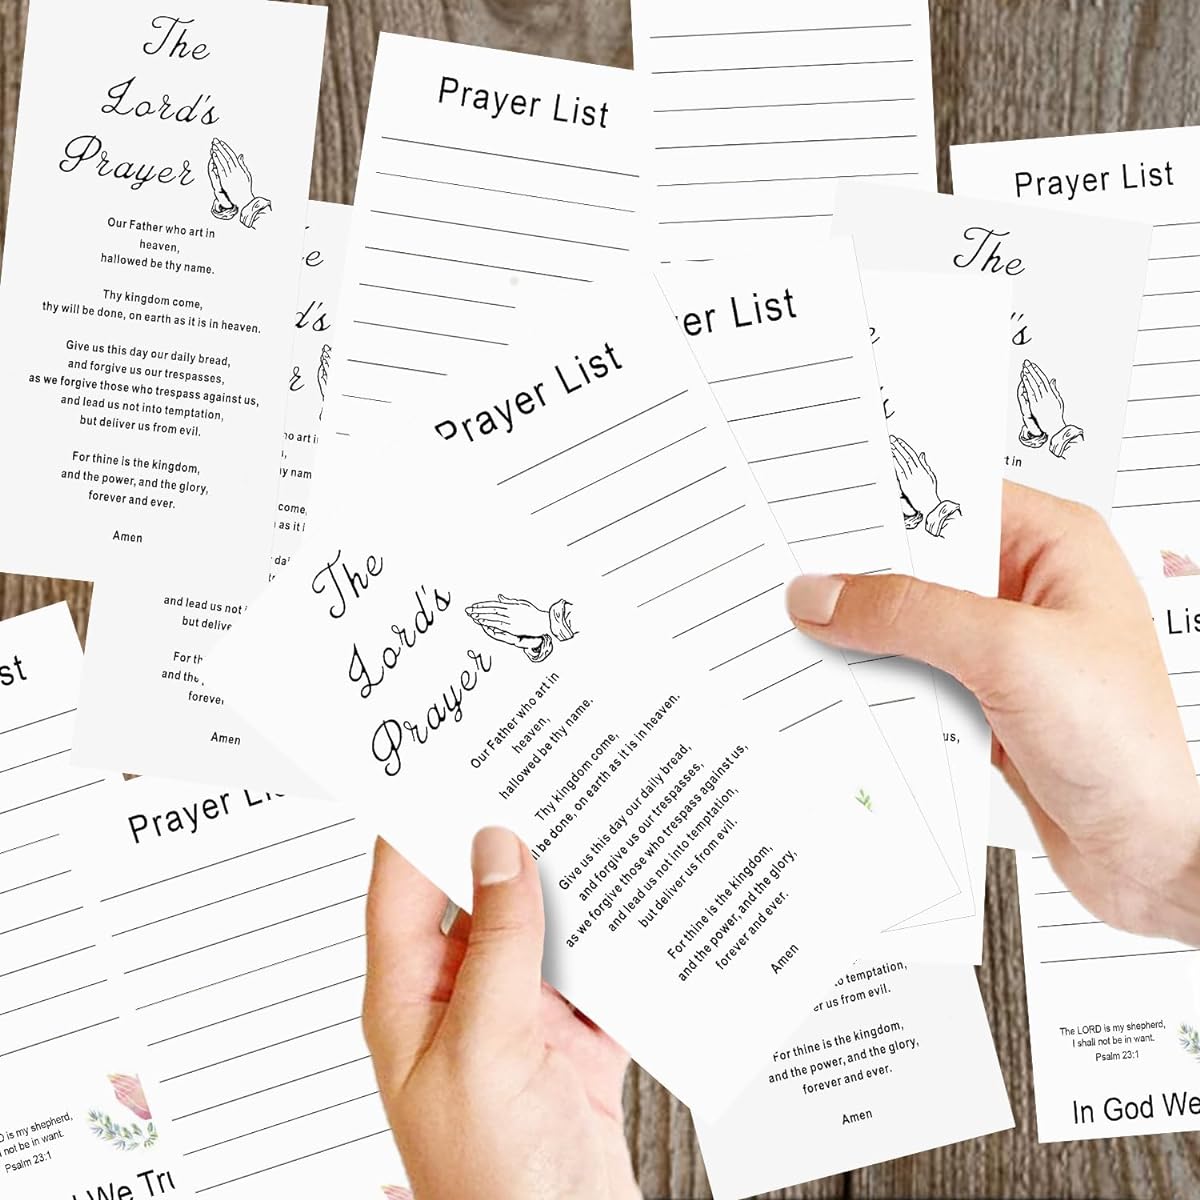 The
Lord's
Prayer
Our Father who art in
heaven,
hallowed be thy name.
Thy kingdom come,
thy will be done, on earth as it is in heaven.
Give us this day our daily bread,
and forgive us our trespasses,
as we forgive those who trespass against us,
and lead us not into temptation,
but deliver us from evil.
For thine is the kingdom,
and the power, and the glory,
forever and ever.
Amen
Prayer List
Prayer List
The
er List
Prayer List
The
Lord's
Prayer
Our Father who art in
heaven,
hallowed be thy name.
Thy kingdom come,
be done, on earth as it is in heaven.
Give us this day our daily bread,
and forgive us our trespasses,
as we forgive those who trespass against us,
and lead us not into temptation,
but deliver us from evil.
For thine is the kingdom,
and the power, and the glory,
forever and ever.
Amen
and lead us not
but
For
and the
forever
Amen
Prayer
temptation,
us from evil.
For thine is the kingdom,
and the power, and the glory,
forever and ever.
Amen
us,
The LORD is my shepherd,
I shall not be in want.
Psalm 23:1
In God We
is my shepherd,
not be in want.
Psalm 23:1
We Tru